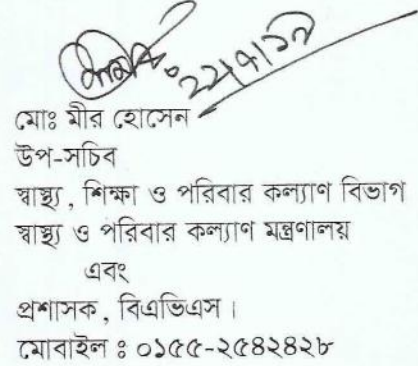 ২২/৭/১৯
মোঃ মীর হোসেন
উপ-সচিব
স্বাস্থ্য, শিক্ষা ও পরিবার কল্যাণ বিভাগ
স্বাস্থ্য ও পরিবার কল্যাণ মন্ত্রণালয়
এবং
প্রশাসক, বিএভিএস।
মোবাইল ঃ ০১৫৫-২৫৪২৪২৮